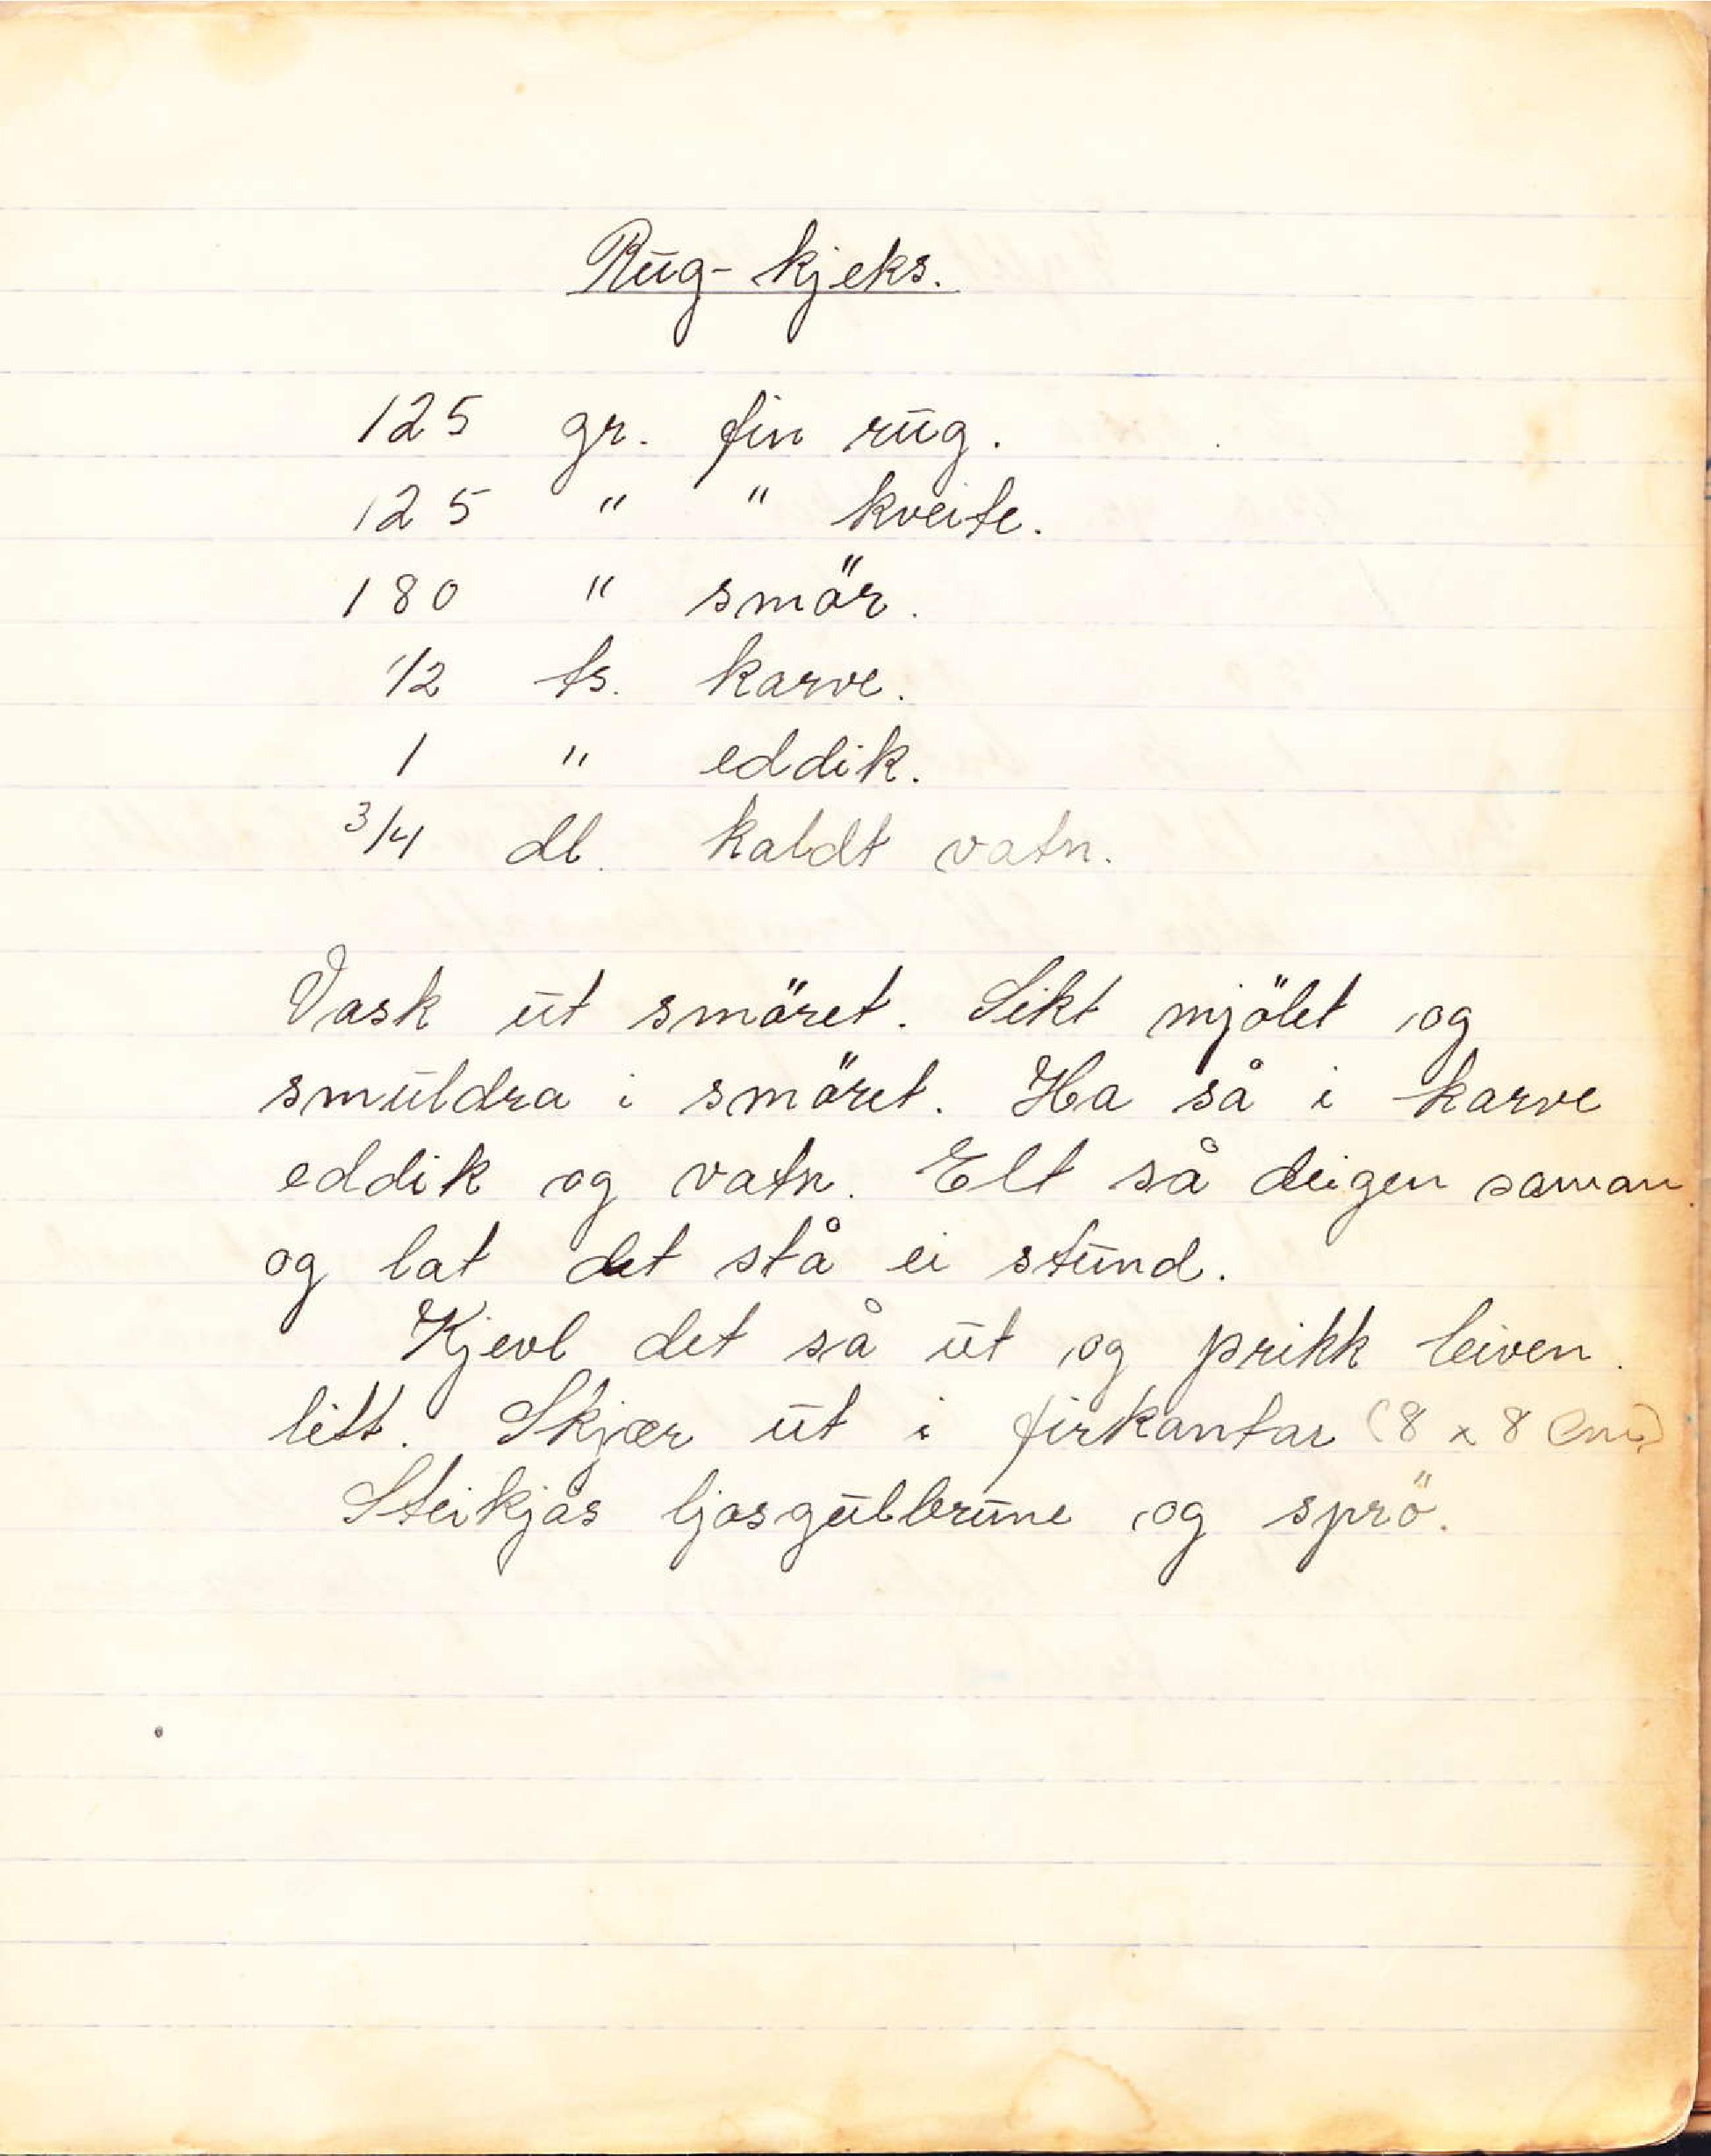 Rug-kjeks.
125 gr. fin rug.
125 " " kveite.
180 " smör.
1/2 ts. karve.
1 " eddik.
3/4 dl. kaldt vatn.
Vask ut smöret. Sikt mjölet og
smuldra i smöret. Ha så i karve
eddik og vatn. Elt så deigen saman
og lat det stå ei stund.
Kjevl det så ut og prikk leiven
litt. Skjær ut i firkantar (8 x 8 cm)
Steikjas ljosgulbrune og sprö.